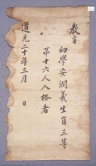 敎旨
幼學安潤義生員三等
第十六人入格者
道光二十年三月 日